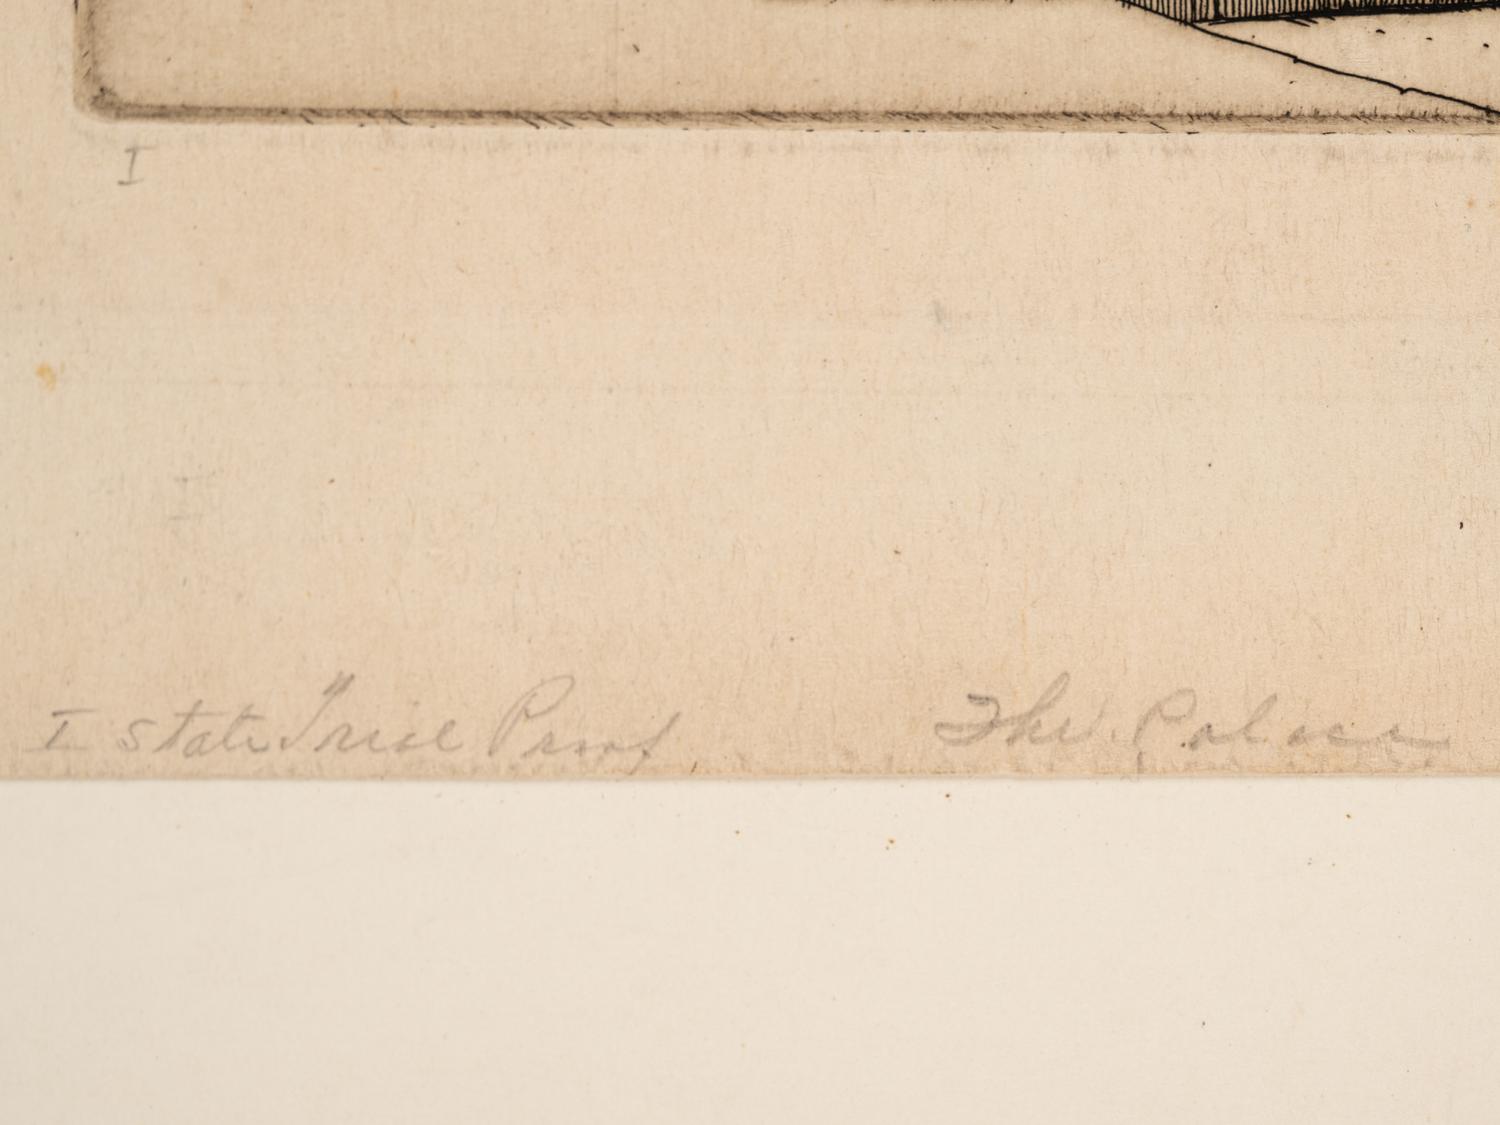 I
I
I state Trial Proof The Palace